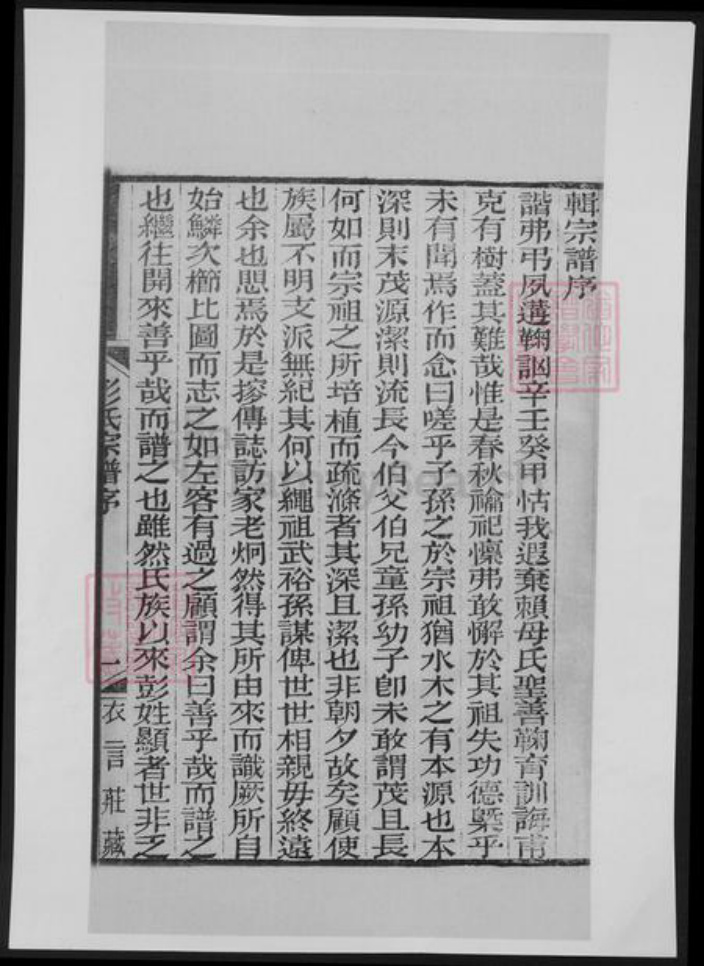 輯宗譜序
諧弗弔夙遘鞠訩辛壬癸甲怙我遐棄賴母氏聖善鞠育訓誨甫
克有樹蓋其難哉惟是春秋禴祀懍弗敢懈於其祖失功德槩乎
未有聞焉作而念曰嗟乎子孫之於宗祖猶水木之有本源也本
深則末茂源潔則流長今伯父伯兄童孫幼子卽未敢謂茂且長
何如而宗祖之所培植而疏滌者其深且潔也非朝夕故矣顧使
族屬不明支派無紀其何以繩祖武裕孫謀俾世世相親毋終遠
也余也思焉於是摉傳誌訪家老炯然得其所由來而識厥所自
始鱗次櫛比圖而志之如左客有過之顧謂余曰善乎哉而譜之
也繼往開來善乎哉而譜之也雖然氏族以來彭姓顯者世非乏
彭氏宗譜序
一
衣言莊藏